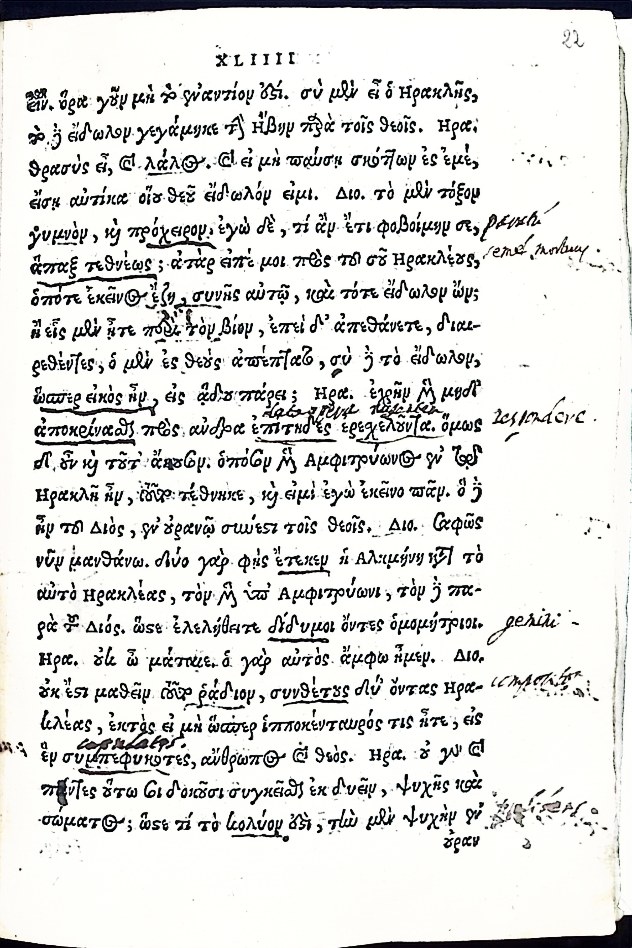 22
XLIIII
εἶν. ὅρα γοῦν μὴ τὸ ἐναντίον ἐστί. σὺ μὲν εἶ ὁ Ηρακλῆς,
τὸ δὲ εἴδωλον γεγάμηκε τὴν Ηβην παρὰ τοῖς θεοῖς. Ηρα.
θρασὺς εἶ, καὶ λάλος. καὶ εἰ μὴ παύσῃ σκώπτων ἐς ἐμέ,
εἴσῃ αὐτίκα οἵου θεοῦ εἴδωλόν εἰμι. Διο. τὸ μὲν τόξον
γυμνὸν, καὶ πρόχειρον. ἐγὼ δὲ, τί ἂν ἔτι φοβοίμην σε,
ἅπαξ τεθνέως; ἀτὰρ εἰπέ μοι πρὸς τοῦ σοῦ Ηρακλέους,
ὁπότε ἐκεῖνος ἔζη, συνῆς αὐτῷ, καὶ τότε εἴδωλον ὤν;
ἢ εἷς μὲν ἦτε παρὰ τὸν βίον, ἐπεὶ δ' ἀπεθάνετε, διαι-
ρεθέντες, ὁ μὲν ἐς θεοὺς ἀπέπτατο, σὺ δὲ τὸ εἴδωλον,
ὥσπερ εἰκὸς ἦν, εἰς ᾅδου πάρει; Ηρα. ἐχρῆν μὲν μηδὲ
ἀποκρίνασθαι πρὸς ἄνδρα ἐπίτηδες ἐρεχελοῦντα. ὅμως
δ' οὖν καὶ τοῦτ' ἄκουσον. ὁπόσον μὲν Αμφιτρύωνος ἐν τῷ
Ηρακλῆ ἦν, τοῦτο τέθνηκε, καὶ εἰμὶ ἐγὼ ἐκεῖνο πᾶν. ὃ δὲ
ἦν τοῦ Διὸς, ἐν οὐρανῷ σύνεστι τοῖς θεοῖς. Διο. Σαφῶς
νῦν μανθάνω. δύο γὰρ φῂς ἔτεκεν ἡ Αλκμήνη κατὰ τὸ
αὐτὸ Ηρακλέας, τὸν μὲν ὑπ' Αμφιτρύωνι, τὸν δὲ πα-
ρὰ τοῦ Διός. ὥστε ἐλελήθειτε δίδυμοι ὄντες ὁμομήτριοι.
Ηρα. οὐκ ὦ μάταιε. ὁ γὰρ αὐτὸς ἄμφω ἦμεν. Διο.
οὐκ ἔστι μαθεῖν τοῦτο ῥᾴδιον, συνθέτους δύ' ὄντας Ηρα-
κλέας, ἐκτὸς εἰ μὴ ὥσπερ ἱπποκένταυρός τις ἦτε, εἰς
ἓν συμπεφυκότες, ἄνθρωπος καὶ θεός. Ηρα. οὐ γὰρ καὶ
πάντες οὕτω σοι δοκοῦσι συγκεῖσθαι ἐκ δυεῖν, ψυχῆς καὶ
σώματος; ὥστε τί τὸ κολύον ἐστὶ, τὴν μὲν ψυχὴν ἐν
οὐραν
semel mortuus.
respondere.
gemini